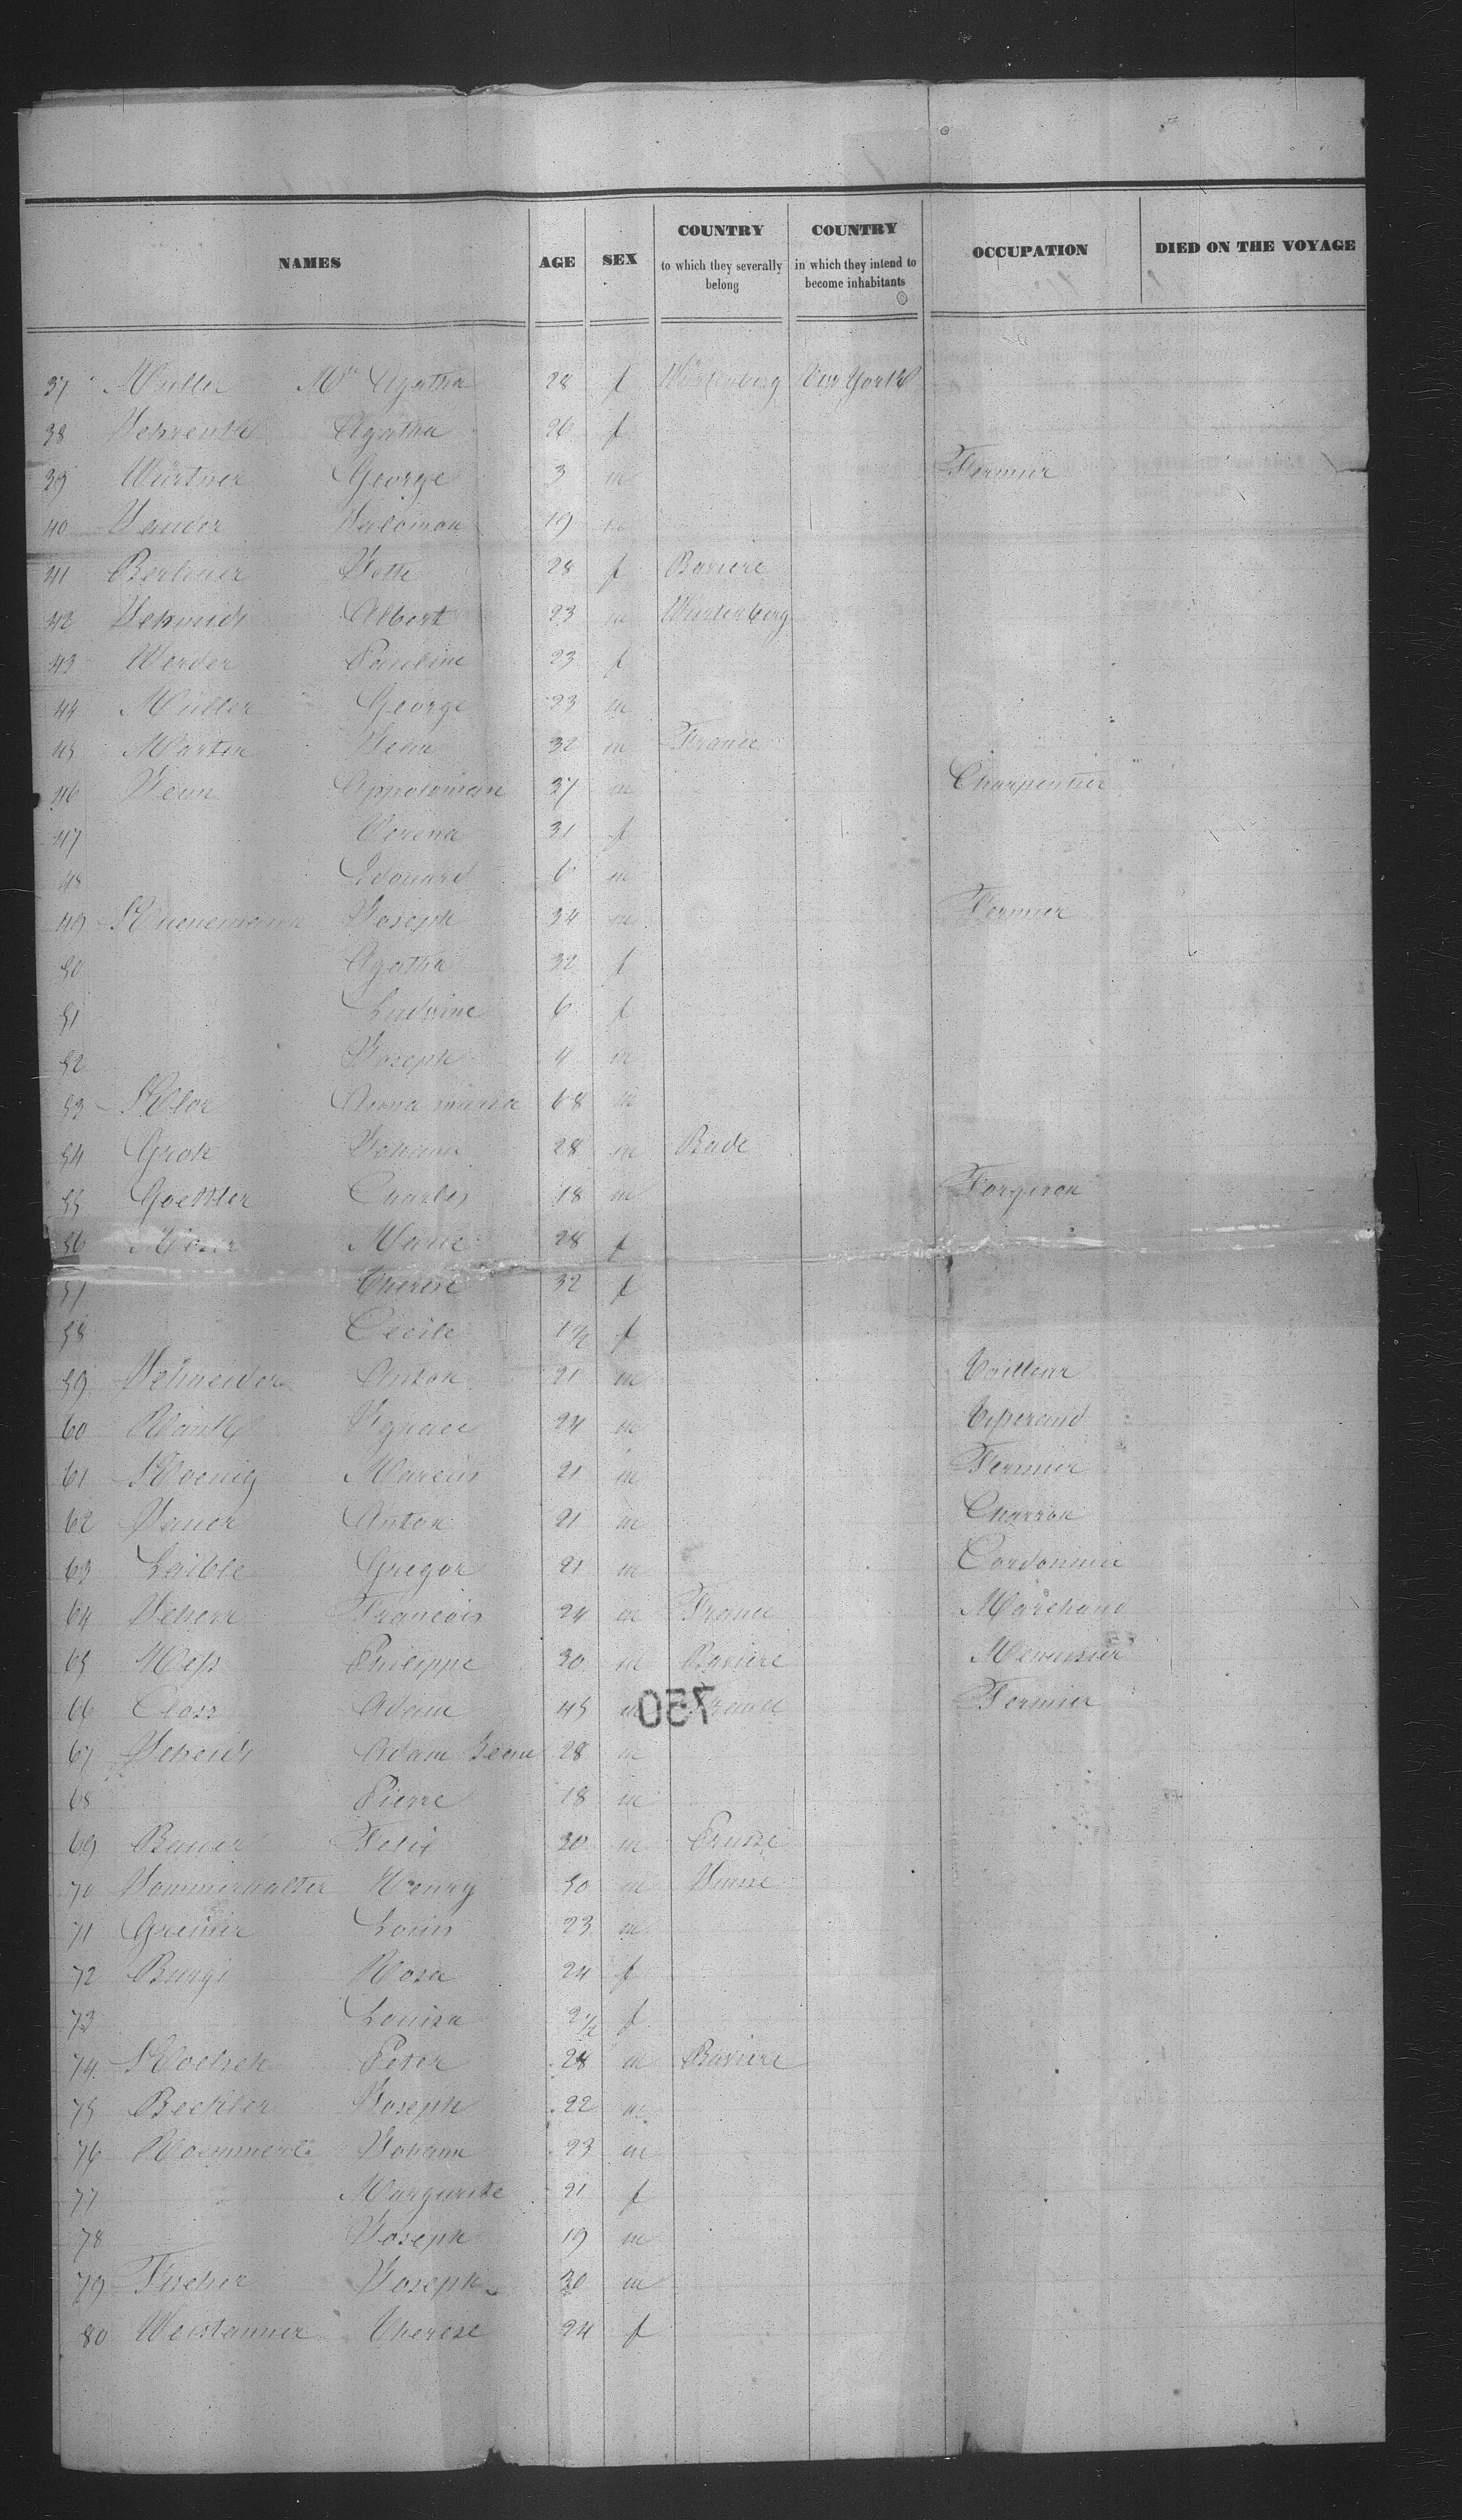 NAMES AGE SEX COUNTRY to which they severally belong COUNTRY in which they intend to become inhabitants OCCUPATION DIED ON THE VOYAGE
37 Muller Mᵃ Agatha 28 f Würtenberg New York
38 Agatha 26 f
39 Würtner George 3 m Fermier
40 Sander Salomon 19 m
41 Berliner 28 f Baviere
42 Schmidt Albert 23 m Würtenberg
43 Werder Pauline 23 f
44 Müller George 23 m
45 Martin Jean 32 m France
46 Jean Appolonian 37 m Charpentier
47 Verena 31 f
48 Edouard 6 m
49 Kuenemann Joseph 34 m Fermier
50 Agatha 32 f
51 Ludvine 6 f
52 Joseph 4 m
53 Klor Anna maria 68 m
54 Groh Johann 28 m Bade
55 Goettler Charles 18 m Forgeron
56 Marie 28 f
57 Therese 32 f
58 Cécile 1 1/2 f
59 Schneider Anton 21 m Tailleur
60 Ignace 24 m Tisserand
61 Koenig Marcus 21 m Fermier
62 Sauor Anton 21 m Charron
63 Laible Gregor 21 m Cordonnier
64 Scherr Francois 24 m France Marchand
65 Hess Philippe 30 m Baviere Menuisier
66 Closs Adam 45 m France Fermier
750
67 Scheidt Adam Jean 28 m
68 Pierre 18 m
69 Bauer Felix 30 m Prusse
70 Sommerhalter Henry 50 m Suisse
71 Grenier Louis 23 m
72 Burgi Rosa 24 f
73 Louisa 2 1/2 f
74 Koelsch Peter 28 m Baviere
75 Bechler Joseph 22 m
76 Roemmerle Johann 23 m
77 Margurite 21 f
78 Joseph 19 m
79 Fischer Joseph 30 m
80 Weistanner Therese 24 f